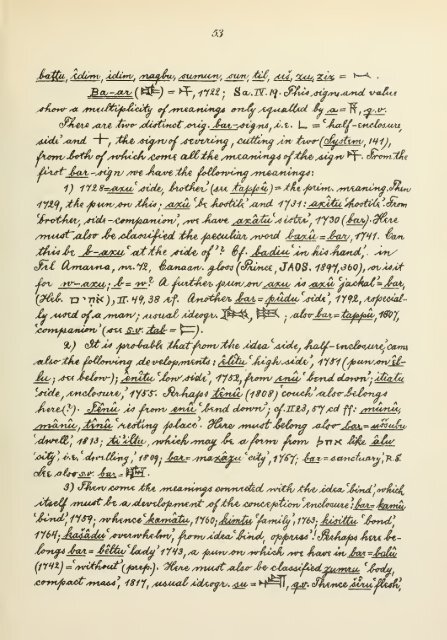 53
battu, êdim, idim, nagbu, sumun, sun, til, uš, zu, ziz =
Ba-ar ( ) = , 1722; Sa. IV. 19. This sign and value
show a multiplicity of meanings only equalled by a = , q.v.
There are two distinct orig. bar-signs, i.e. L = 'half-enclosure,
side' and +, the sign of severing, cutting in two (System, 141),
from both of which come all the meanings of the sign . From the
first bar-sign we have the following meanings:
1) 1728=axu 'side, brother' (see tappû) = the prim. meaning. Then
1729, the pun on this; axû 'be hostile' and 1731: axâtu 'hostile'. From
'brother, side-companion', we have axâtu 'sister', 1730 (bar). Here
must also be classified the peculiar word baxû = bar, 1741. Can
this be b-axu 'at the side of'? Cf. badiu 'in his hand', in
Tel Amarna, nr. 72, Canaan. gloss (Prince, JAOS. 1897, 360), or is it
for w-axu; b = w? A further pun on axu is axû 'jackal' = bar,
(Heb. ), II. 49, 38 . Another bar = pûdu 'side', 1792, especial-
ly used of a man; usual ideogr. , ; also bar = tappû, 1807,
'companion' (see s.v. tab = ).
2) It is probable that from the idea 'side, half-enclosure', came
also the following developments: êlîtu 'high side', 1751 (pun on êl-
lu; see below); ênîtu 'low side', 1752, from enû 'bend down'; itatu
'side, enclosure', 1755. Perhaps tînû (1808) couch' also belongs
here(?). Tênû is from enû 'bend down'; cf. II 23, 57 cd ff: munû,
mânû, tînû 'resting place'. Here must belong also bar = ušsubu
'dwell', 1813; ti'iltu, which may be a form from like âlu
'city', i.e. 'dwelling', 1809; bar = maxâzu 'city', 1767; bar = sanctuary,
See also s.v. bar = .
3) Then come the meanings connected with the idea 'bind', which
itself must be a development of the conception 'enclosure': bar = kamû
'bind', 1759; whence kamâtu, 1760; kimtu 'family', 1763; kisittu 'bond',
1764; kašâdu 'overwhelm', from idea 'bind, oppress'. Perhaps here be-
longs bar = bêltu 'lady' 1743, a pun on which we have in bar = balu
(1742) = 'without' (prep.). Here must also be classified zumru 'body,
compact mass', 1817, usual ideogr. su = , q.v. Thence šîru 'flesh',